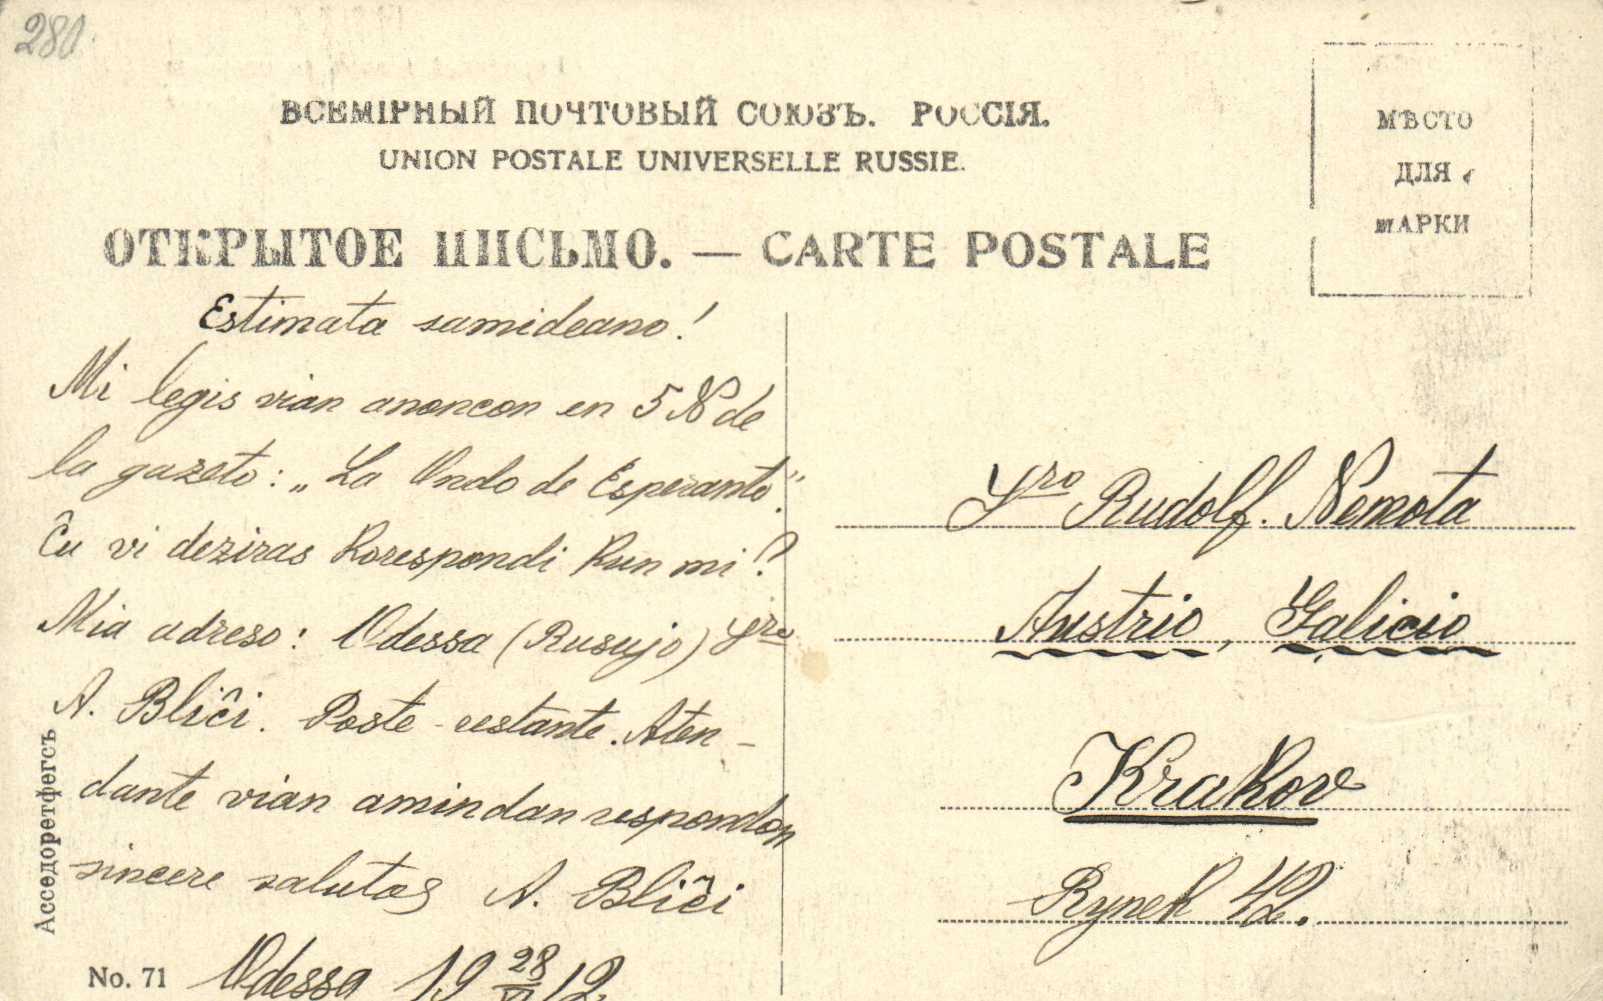 280.
ВСЕМІРНЫЙ ПОЧТОВЫЙ СОЮЗЪ. РОССІЯ.
UNION POSTALE UNIVERSELLE RUSSIE.
МѢСТО
ДЛЯ
МАРКИ
ОТКРЫТОЕ ПИСЬМО. — CARTE POSTALE
Estimata samideano!
Mi legis vian anoncon en 5 № de
la gazeto: „La Ondo de Esperanto".
Ĉu vi deziras korespondi kun mi?
Mia adreso: Odessa (Rusujo) Sro
A. Bliĉi. Poste-restante. Aten-
dante vian amindan respondon
sincere salutas A. Bliĉi
Odessa 19 28/VI 12.
Sro Rudolf. Nemota
Austrio, Galicio
Krakov
Rynek 42.
Ассѣдоретфегсъ
No. 71